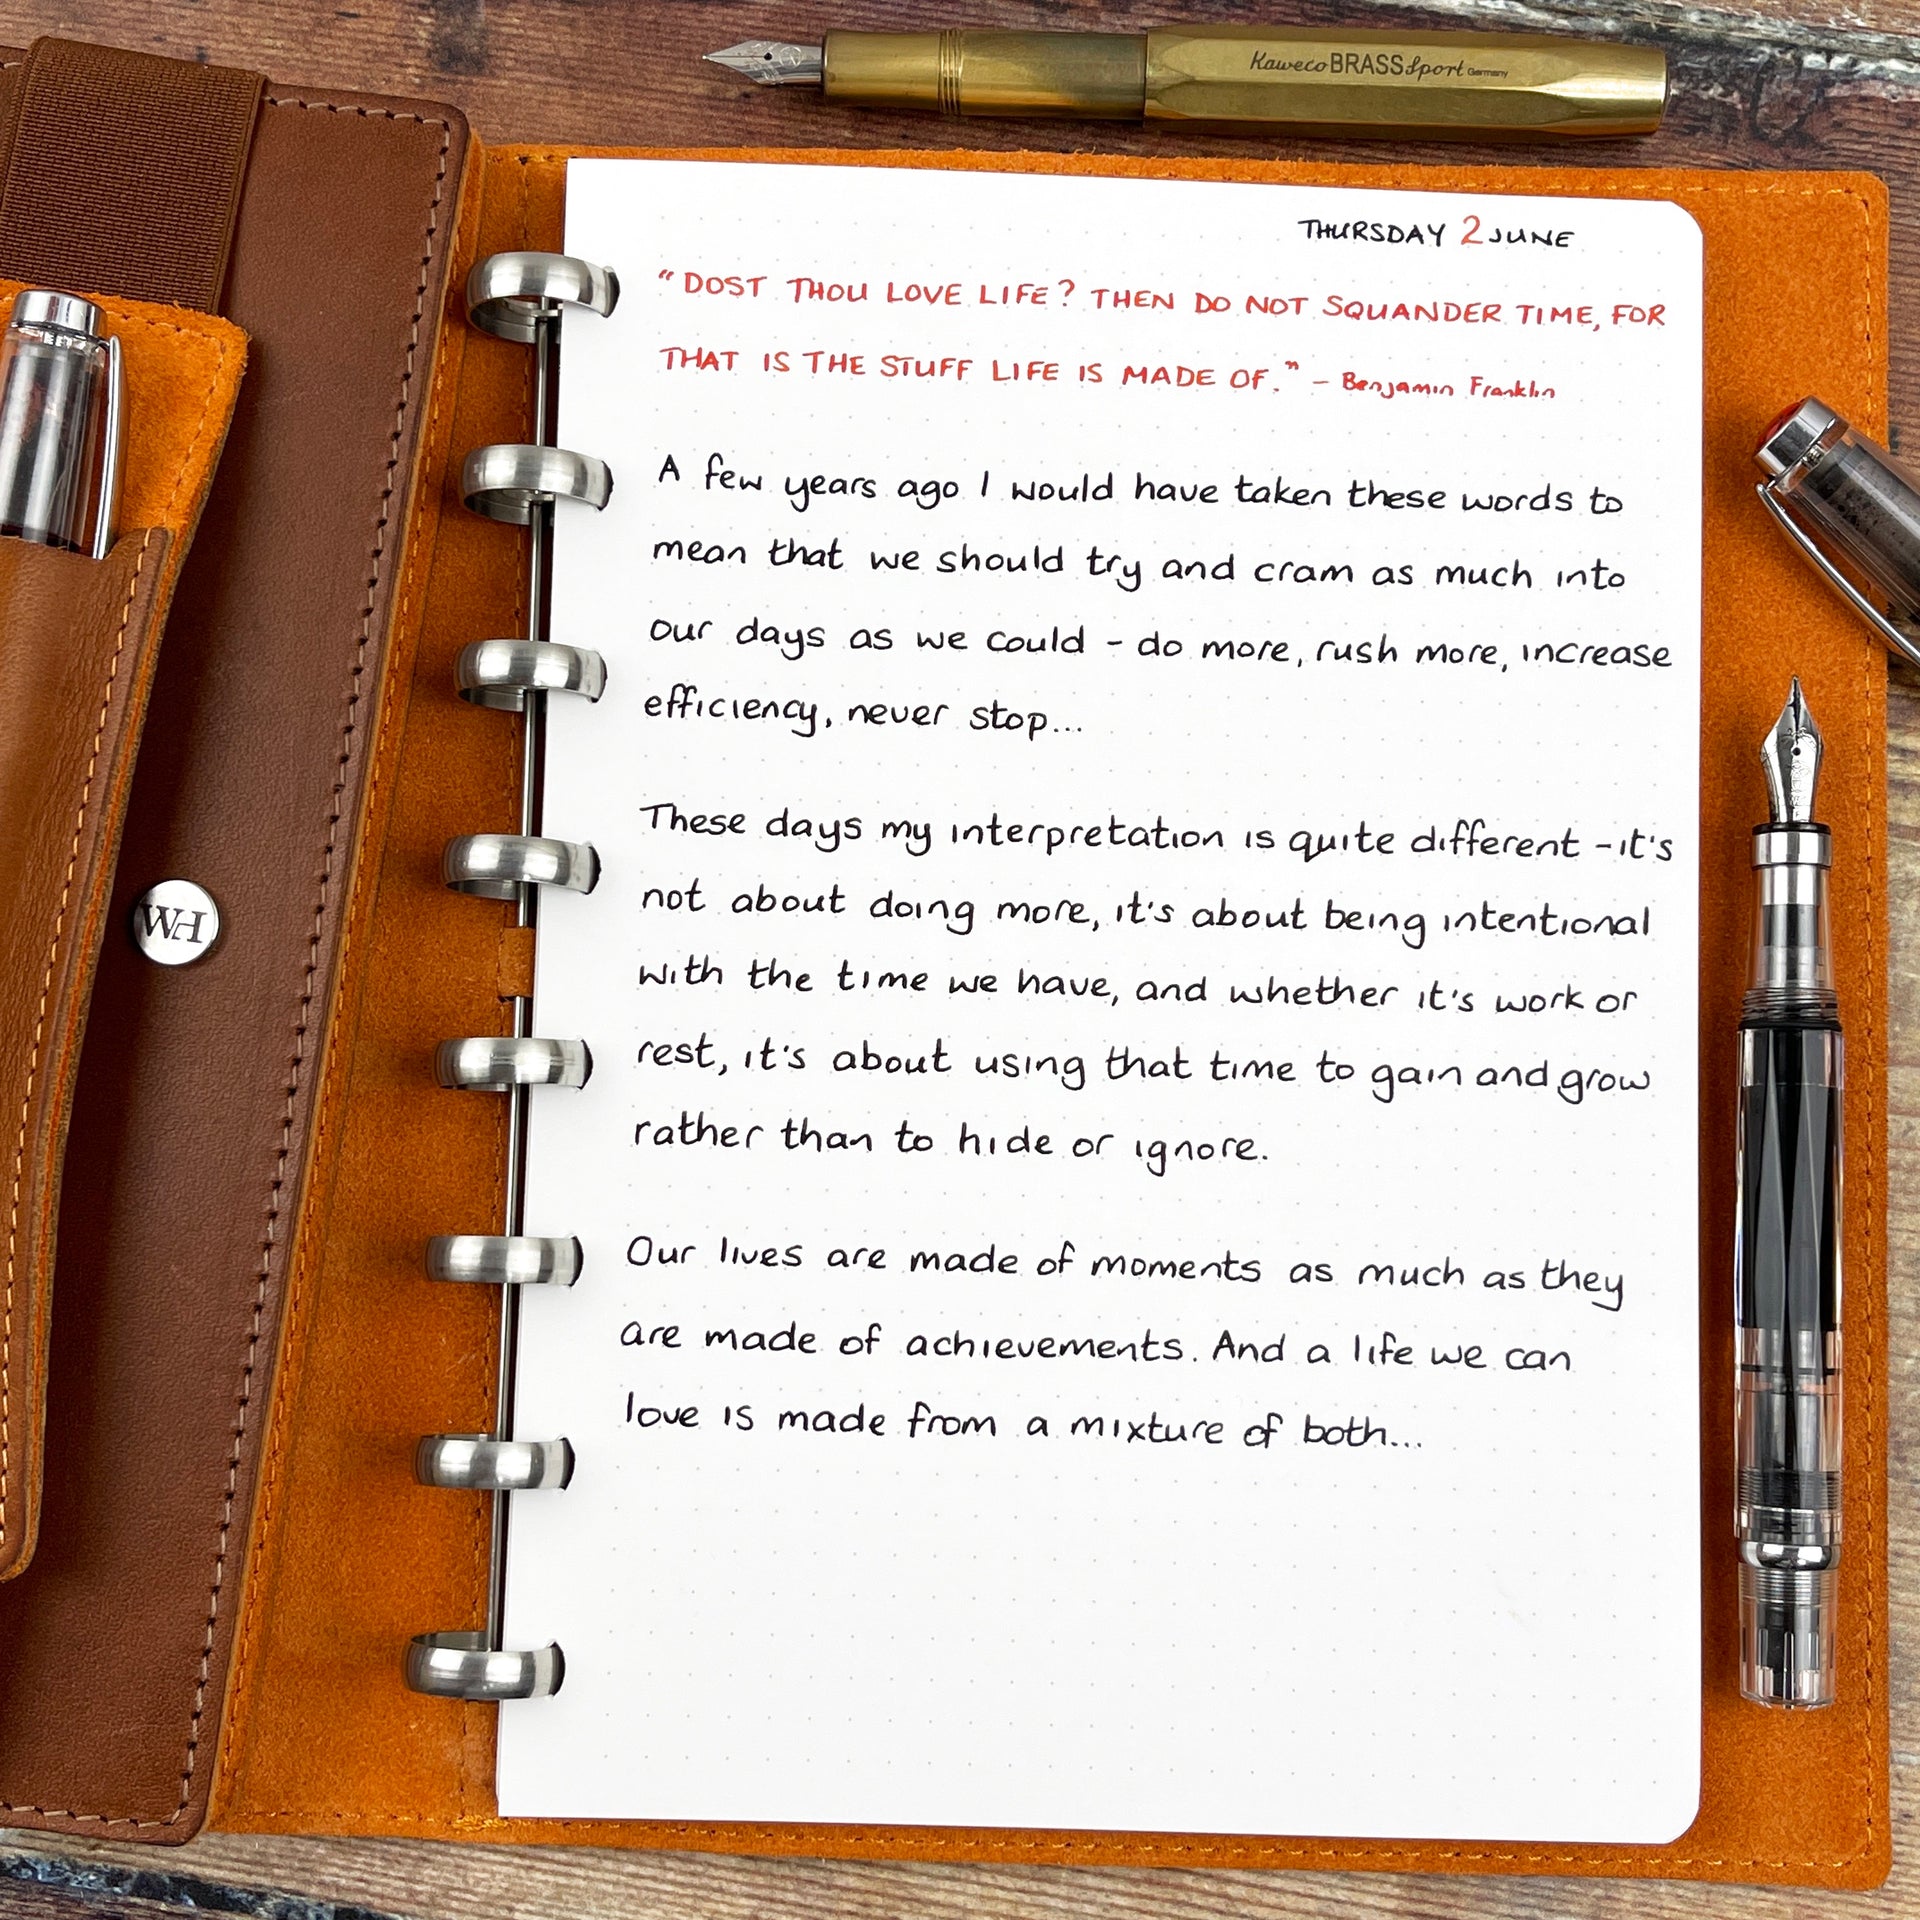 Kaweco BRASS Sport Germany
THURSDAY 2 JUNE
"DOST THOU LOVE LIFE? THEN DO NOT SQUANDER TIME, FOR
THAT IS THE STUFF LIFE IS MADE OF." - Benjamin Franklin
A few years ago I would have taken these words to
mean that we should try and cram as much into
our days as we could - do more, rush more, increase
efficiency, never stop...
These days my interpretation is quite different - it's
not about doing more, it's about being intentional
with the time we have, and whether it's work or
rest, it's about using that time to gain and grow
rather than to hide or ignore.
Our lives are made of moments as much as they
are made of achievements. And a life we can
love is made from a mixture of both...
WH